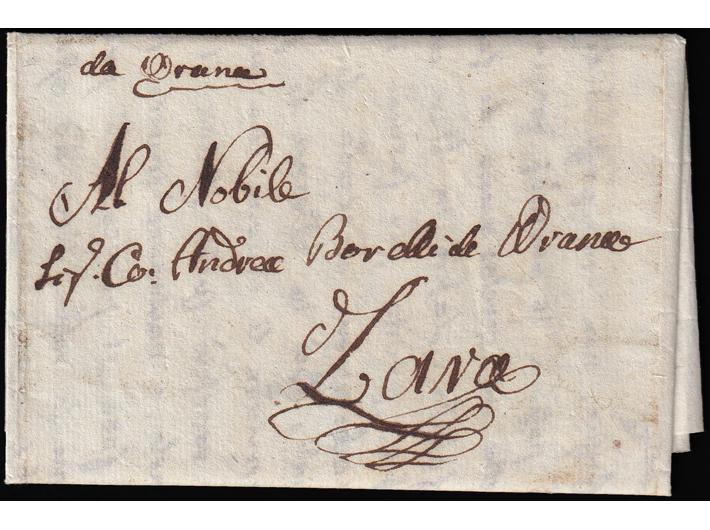 da Vrana
Al Nobile
Sigr. Co: Andrea Borelli de Vrana
Zara